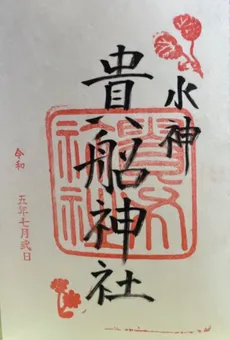 水神
貴船神社
令和 五年七月弐日